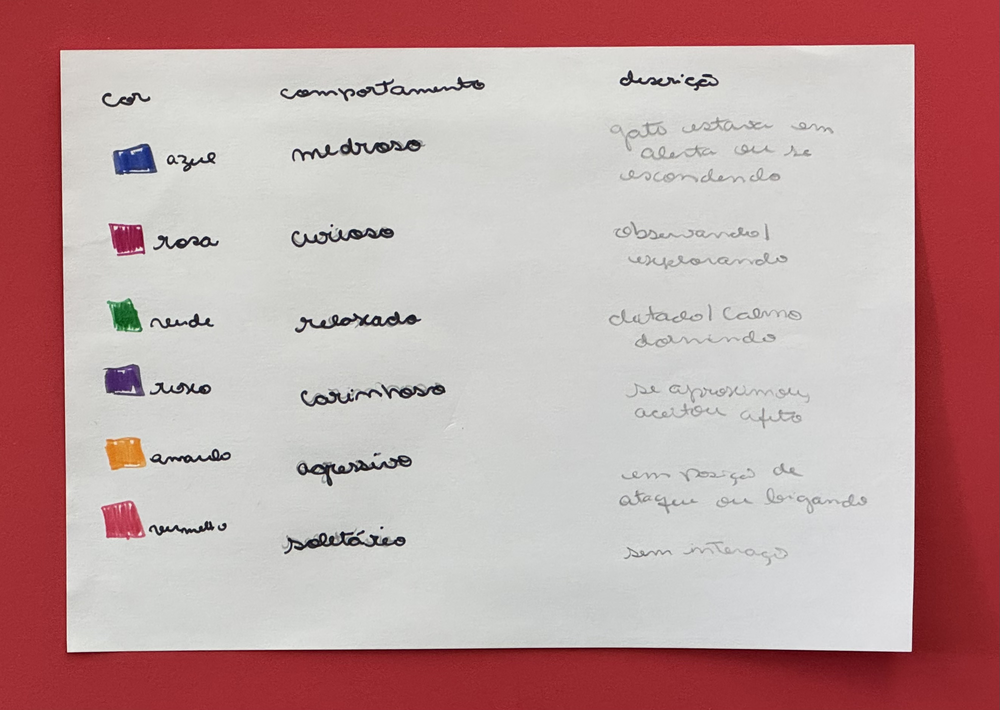 cor comportamento descrição
azul medroso gato estava em
alerta ou se
escondendo
rosa curioso observando/
explorando
verde relaxado deitado/calmo
dormindo
roxo carinhoso se aproximou,
aceitou afeto
amarelo agressivo em posiçã de
ataque ou brigando
vermelho solitário sem interaçã